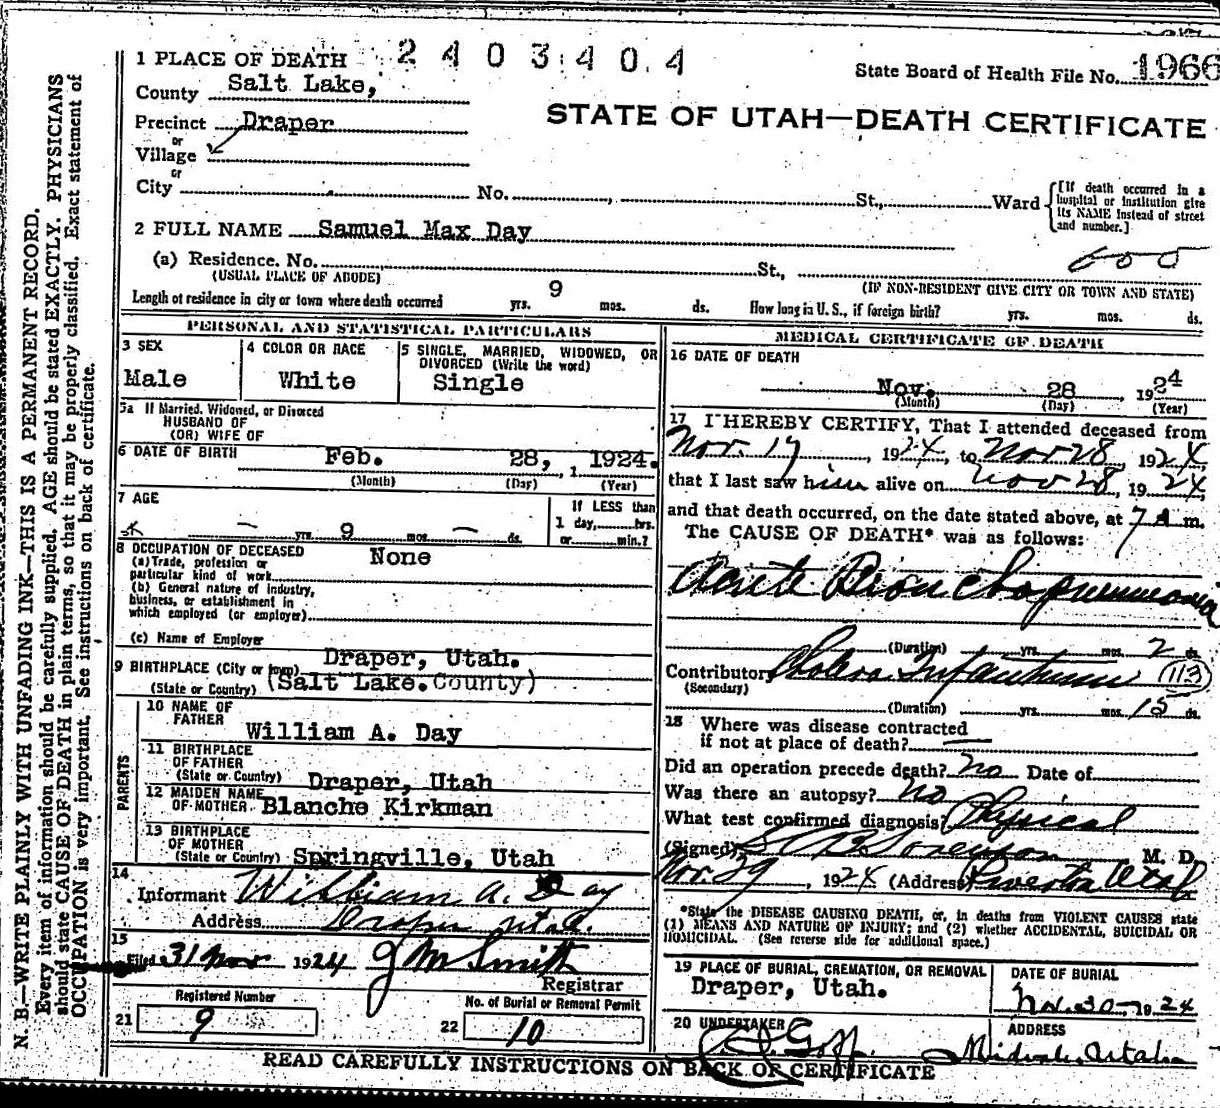 1 PLACE OF DEATH 2 4 0 3 4 0 4
State Board of Health File No. 1966
County Salt Lake,
STATE OF UTAH—DEATH CERTIFICATE
Precinct Draper
or
Village
or
City No. St., Ward
[If death occurred in a hospital or institution give its NAME instead of street and number.]
2 FULL NAME Samuel Max Day
(a) Residence. No. St.,
(USUAL PLACE OF ABODE) (IF NON-RESIDENT GIVE CITY OR TOWN AND STATE)
Length of residence in city or town where death occurred yrs. 9 mos. ds. How long in U. S., if foreign birth? yrs. mos. ds.
PERSONAL AND STATISTICAL PARTICULARS
3 SEX
Male
4 COLOR OR RACE
White
5 SINGLE, MARRIED, WIDOWED, OR DIVORCED (Write the word)
Single
5a If Married, Widowed, or Divorced
HUSBAND OF
(OR) WIFE OF
6 DATE OF BIRTH Feb. 28, 1924.
(Month) (Day) (Year)
7 AGE
— yrs. 9 mos. — ds.
If LESS than
1 day, hrs.
or min.?
8 OCCUPATION OF DECEASED None
(a) Trade, profession or
particular kind of work
(b) General nature of industry,
business, or establishment in
which employed (or employer)
(c) Name of Employer
9 BIRTHPLACE (City or town) Draper, Utah.
(State or Country) (Salt Lake County)
PARENTS
10 NAME OF
FATHER William A. Day
11 BIRTHPLACE
OF FATHER
(State or Country) Draper, Utah
12 MAIDEN NAME
OF MOTHER Blanche Kirkman
13 BIRTHPLACE
OF MOTHER
(State or Country) Springville, Utah
14
Informant William A. Day
Address Draper Utah.
15
Filed 31 Nov 1924 J M Smith
Registrar
Registered Number
21 9
No. of Burial or Removal Permit
22 10
MEDICAL CERTIFICATE OF DEATH
16 DATE OF DEATH
Nov. 28, 1924
(Month) (Day) (Year)
17 I HEREBY CERTIFY, That I attended deceased from
Nov. 17, 1924, to Nov 28, 1924,
that I last saw him alive on Nov 28, 1924,
and that death occurred, on the date stated above, at 7 A m.
The CAUSE OF DEATH* was as follows:
Acute Bronchopneumonia
(Duration) yrs. mos. 2 ds.
Contributory Cholera Infantum (113)
(Secondary)
(Duration) yrs. mos. 15 ds.
18 Where was disease contracted
if not at place of death? —
Did an operation precede death? no Date of
Was there an autopsy? No
What test confirmed diagnosis? Physical
(Signed) Sorenson M. D.
Nov. 29, 1924 (Address) Utah
*State the DISEASE CAUSING DEATH, or, in deaths from VIOLENT CAUSES state
(1) MEANS AND NATURE OF INJURY; and (2) whether ACCIDENTAL, SUICIDAL OR
HOMICIDAL. (See reverse side for additional space.)
19 PLACE OF BURIAL, CREMATION, OR REMOVAL
Draper, Utah.
DATE OF BURIAL
Nov. 30—1924
20 UNDERTAKER
Goff.
ADDRESS
Midvale, Utah
READ CAREFULLY INSTRUCTIONS ON BACK OF CERTIFICATE
N. B.—WRITE PLAINLY WITH UNFADING INK—THIS IS A PERMANENT RECORD.
Every item of information should be carefully supplied. AGE should be stated EXACTLY. PHYSICIANS
should state CAUSE OF DEATH in plain terms, so that it may be properly classified. Exact statement of
OCCUPATION is very important. See instructions on back of certificate.